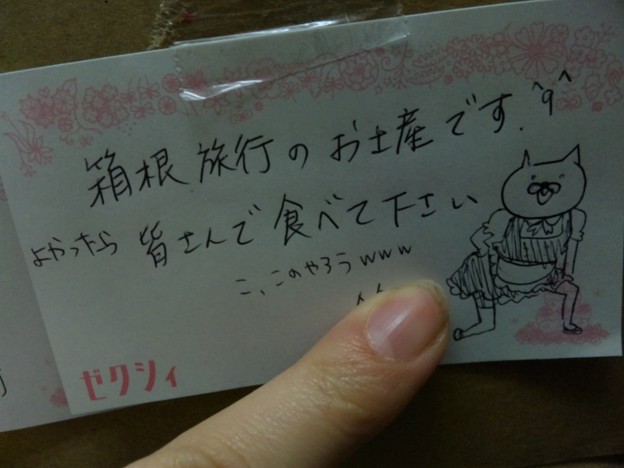 箱根旅行のお土産です.^9^
よかったら 皆さんで食べて下さい
こ、このやろうwww
ゼクシィ